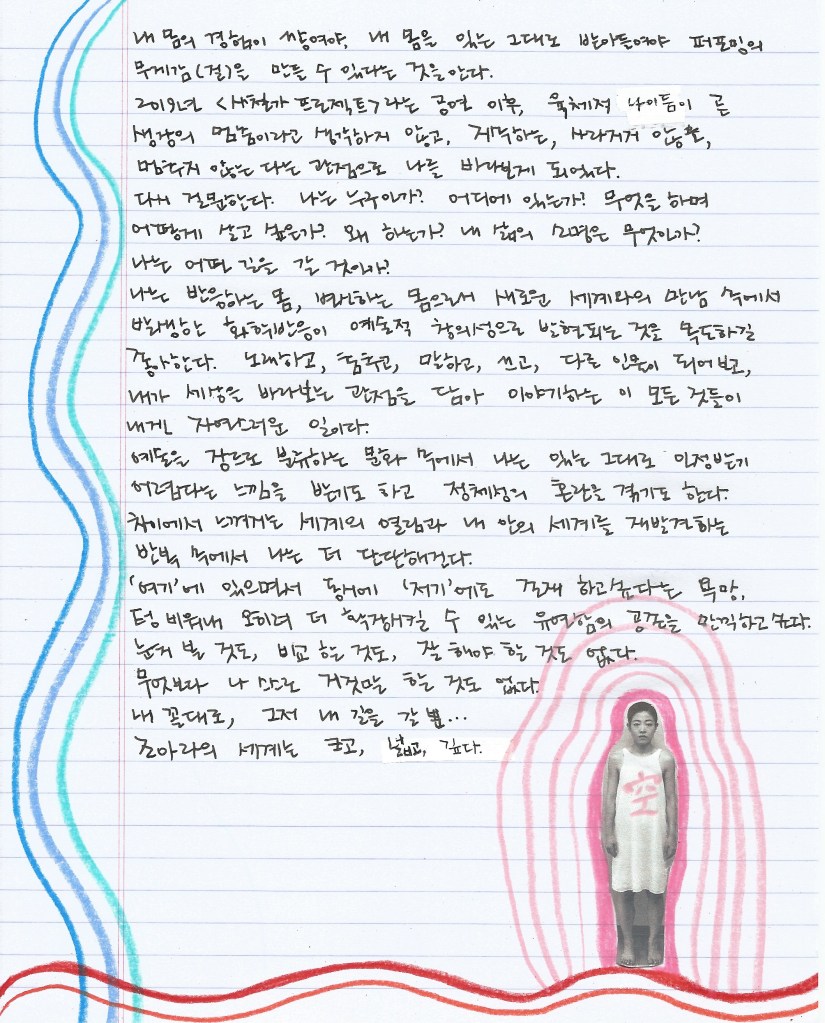 내 몸의 경험이 쌓여야, 내 몸을 있는 그대로 받아들여야 퍼포밍의
무게감(결)을 만들 수 있다는 것을 안다.
2019년 <사철가 프로젝트>라는 공연 이후, 육체적 나이듦이 곧
생장의 멈춤이라고 생각하지 않고, 지속하는, 사라지지 않는,
멈추지 않는 다는 관점으로 나를 바라보게 되었다.
다시 질문한다. 나는 누구인가? 어디에 있는가? 무엇을 하며
어떻게 살고 싶은가? 왜 하는가? 내 삶의 소명은 무엇인가?
나는 어떤 길을 갈 것인가?
나는 반응하는 몸, 변화하는 몸으로서 새로운 세계와의 만남 속에서
발생한 화학반응이 예술적 창의성으로 발현되는 것을 목도하길
좋아한다. 노래하고, 춤추고, 말하고, 쓰고, 다른 인물이 되어보고,
내가 세상을 바라보는 관점을 담아 이야기하는 이 모든 것들이
내겐 자연스러운 일이다.
예술을 장르로 분류하는 문화 속에서 나는 있는 그대로 인정받기
어렵다는 느낌을 받기도 하고 정체성의 혼란을 겪기도 한다.
차이에서 느껴지는 세계의 열림과 내 안의 세계를 재발견하는
반복 속에서 나는 더 단단해진다.
'여기'에 있으면서 동시에 '저기'에도 존재 하고싶다는 욕망,
텅 비워내 오히려 더 확장해킬 수 있는 유연함의 공간을 만끽하고 싶다.
눈치 볼 것도, 비교 할 것도, 잘 해야 할 것도 없다.
무엇보다 나 스스로 거짓말 할 것도 없다.
내 꼴대로, 그저 내 길을 갈 뿐...
조아라의 세계는 크고, 넓고, 깊다.
空